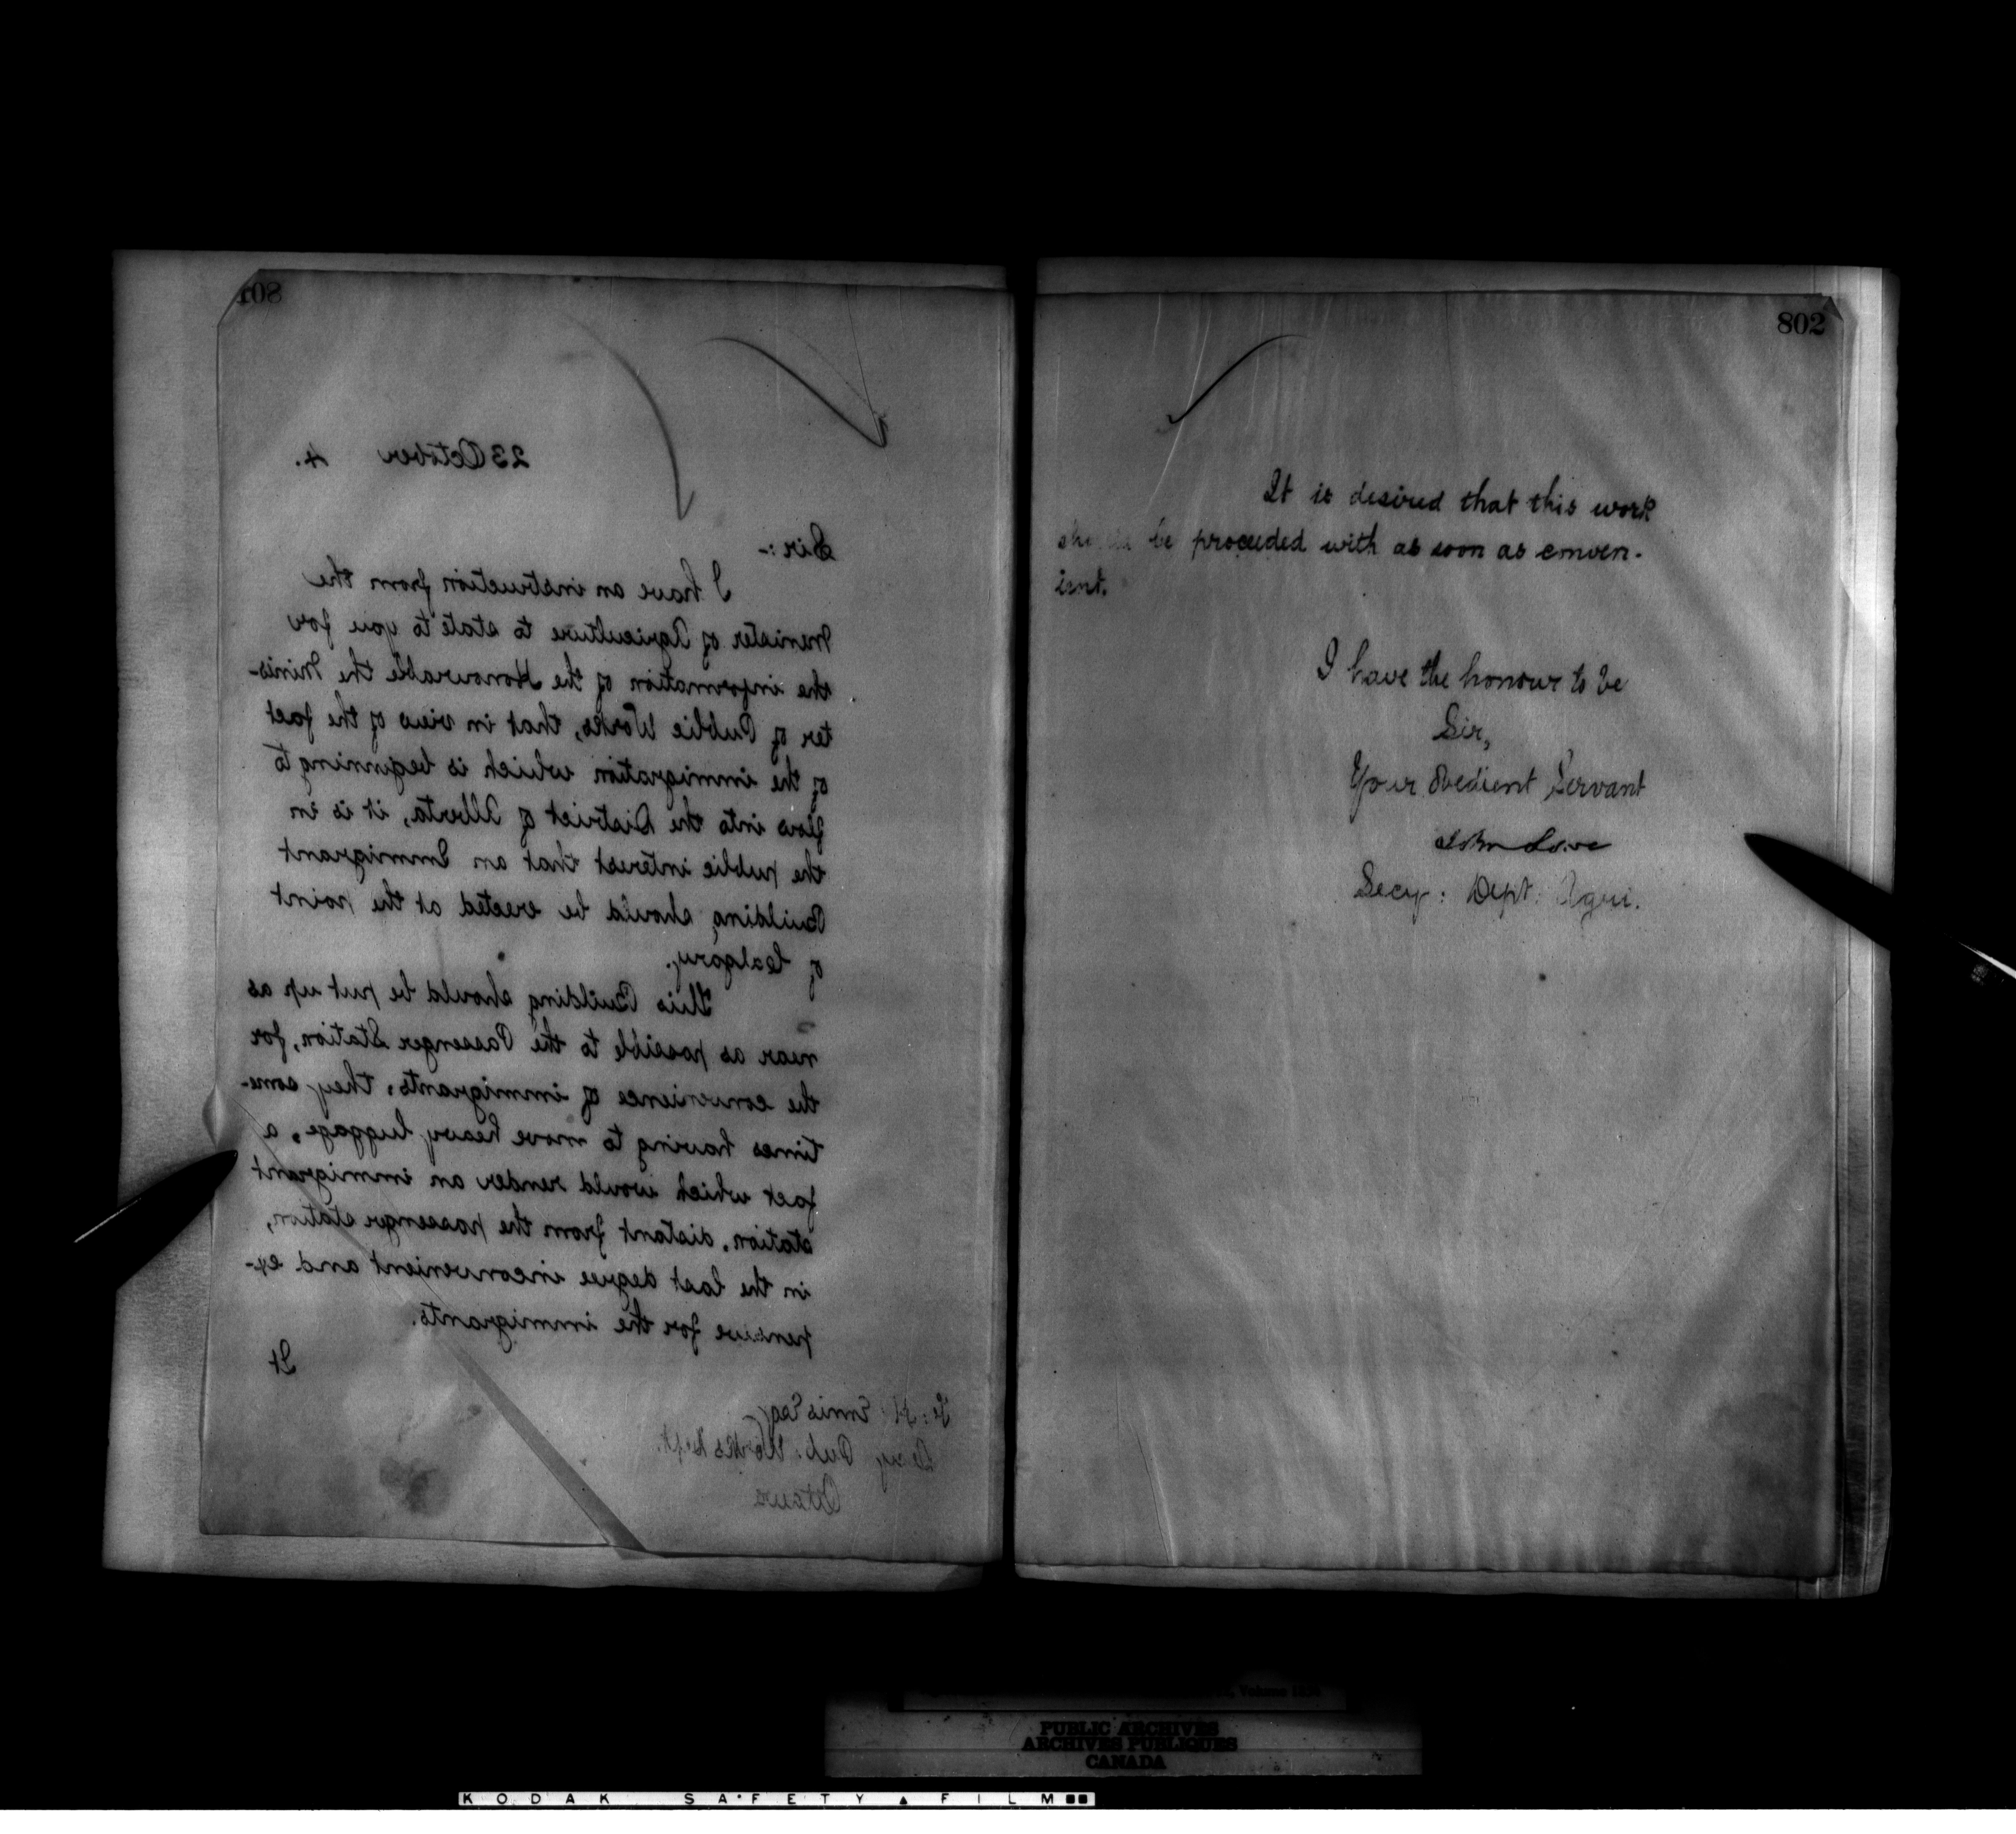 801
23 October 4.
Sir:-
I have an instruction from the
Minister of Agriculture to state to you for
the information of the Honourable the Minis-
ter of Public Works, that in view of the fact
of the immigration which is beginning to
flow into the District of Alberta, it is in
the public interest that an Immigrant
Building should be erected at the point
of Calgary.
This Building should be put up as
near as possible to the Passenger Station, for
the convenience of immigrants, they some-
times having to move heavy luggage, a
fact which would render an immigrant
station, distant from the passenger station,
in the last degree inconvenient and ex-
pensive for the immigrants.
It
F. H. Ennis Esq
Secy Pub: Works Dept.
Ottawa
802
It is desired that this work
should be proceeded with as soon as conven-
ient.
I have the honour to be
Sir,
Your Obedient Servant
John Lowe
Secy: Dept: Agri.
Volume
PUBLIC ARCHIVES
ARCHIVES PUBLIQUES
CANADA
KODAK SAFETY FILM